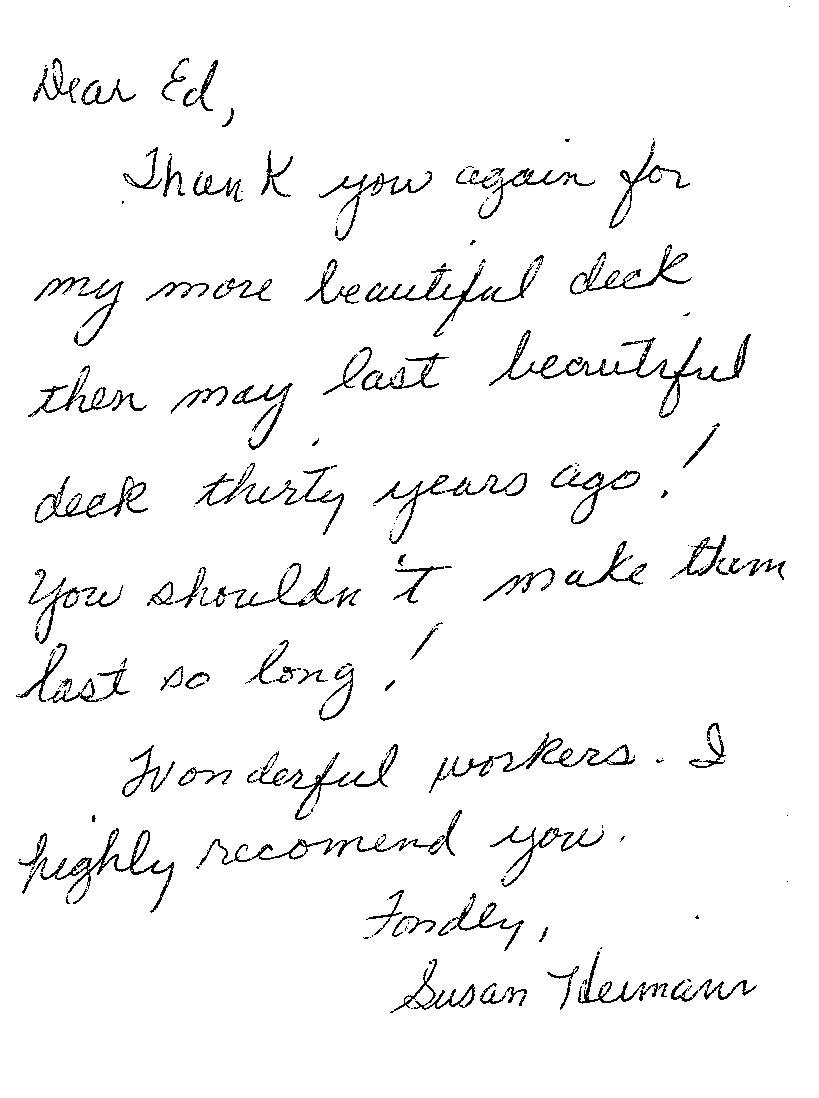 Dear Ed,
Thank you again for
my more beautiful deck
then may last beautiful
deck thirty years ago!
You shouldn't make them
last so long!
Wonderful workers. I
highly recomend you.
Fondly,
Susan